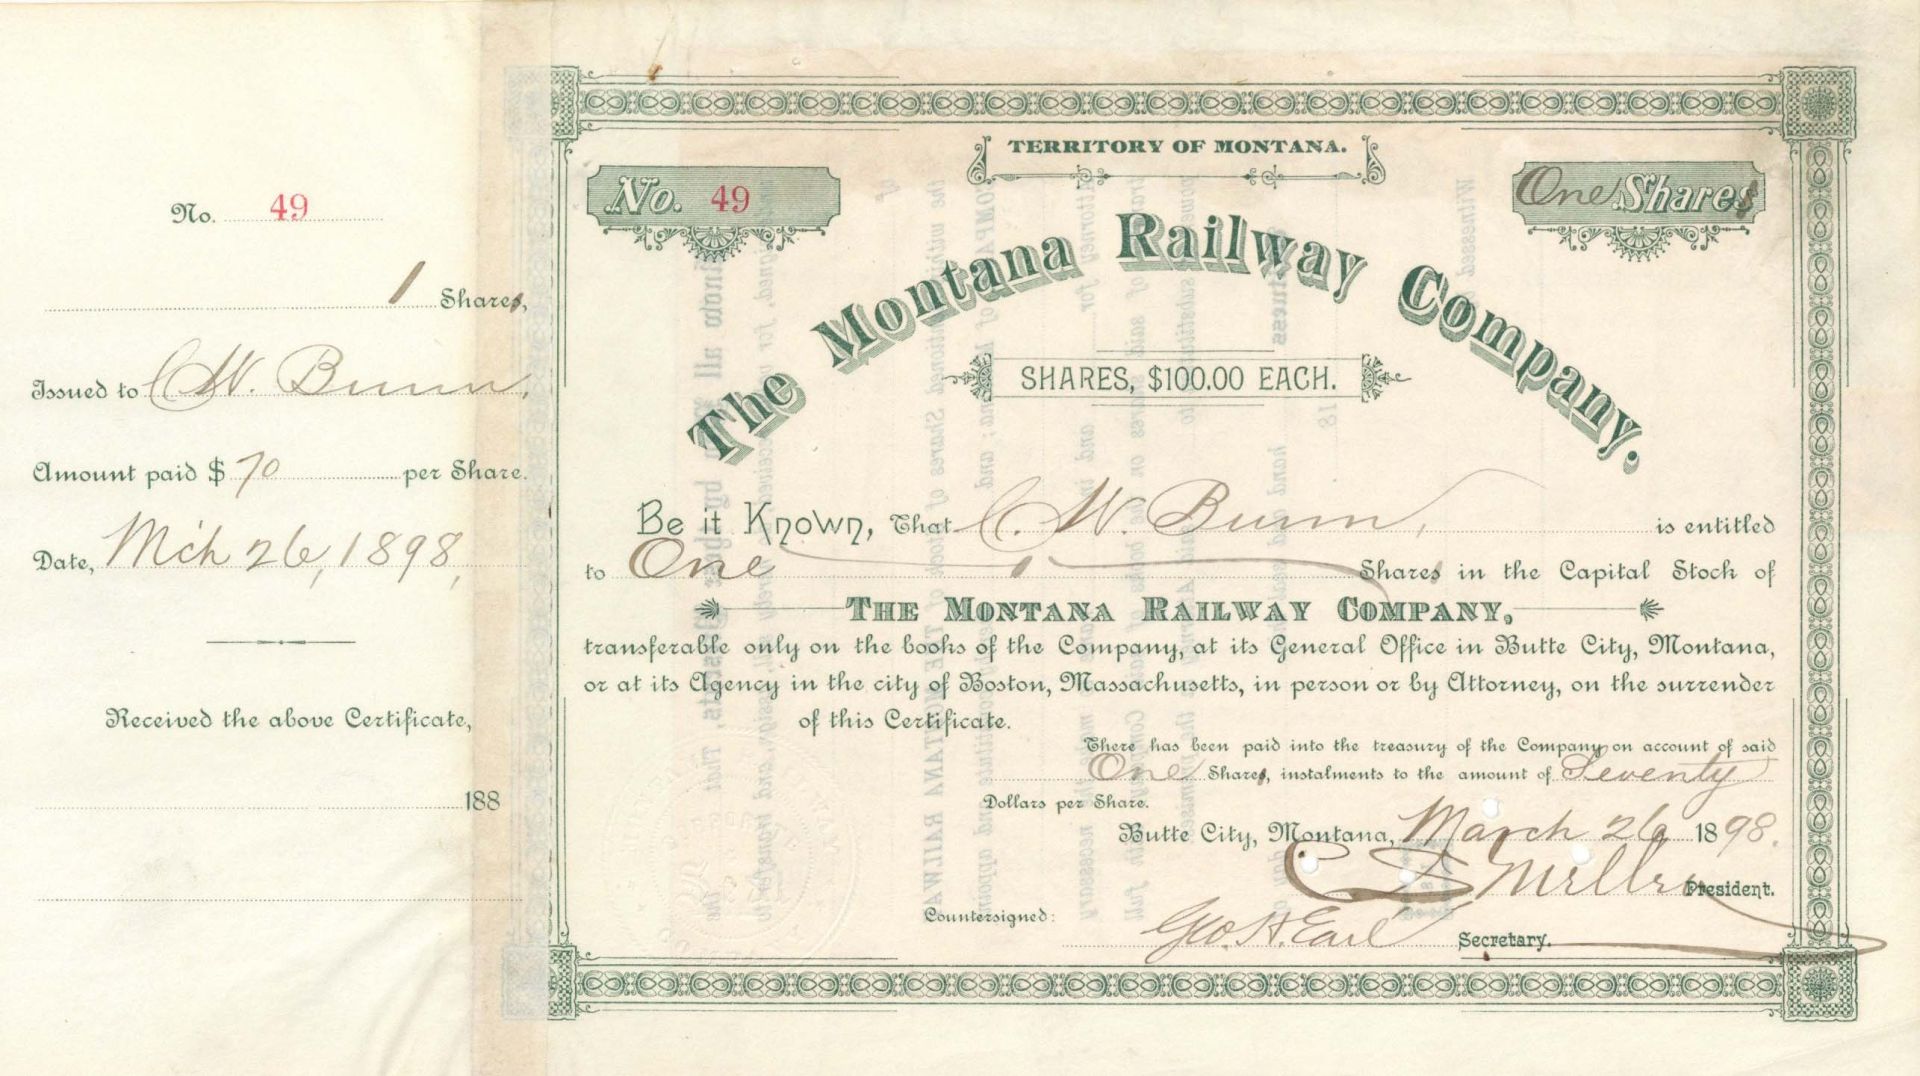 No. 49
1 Shares,
Issued to C. W. Bunn,
Amount paid $ 70 per Share.
Date, M'ch 26, 1898,
Received the above Certificate,
188
TERRITORY OF MONTANA.
No. 49
One Shares
The Montana Railway Company.
SHARES, $100.00 EACH.
Be it Known, That C. W. Bunn, is entitled
to One Shares in the Capital Stock of
THE MONTANA RAILWAY COMPANY,
transferable only on the books of the Company, at its General Office in Butte City, Montana,
or at its Agency in the city of Boston, Massachusetts, in person or by Attorney, on the surrender
of this Certificate.
There has been paid into the treasury of the Company on account of said
One Shares, instalments to the amount of Seventy
Dollars per Share.
Butte City, Montana, March 26 1898.
President.
Countersigned:
Geo. H. Earl Secretary.